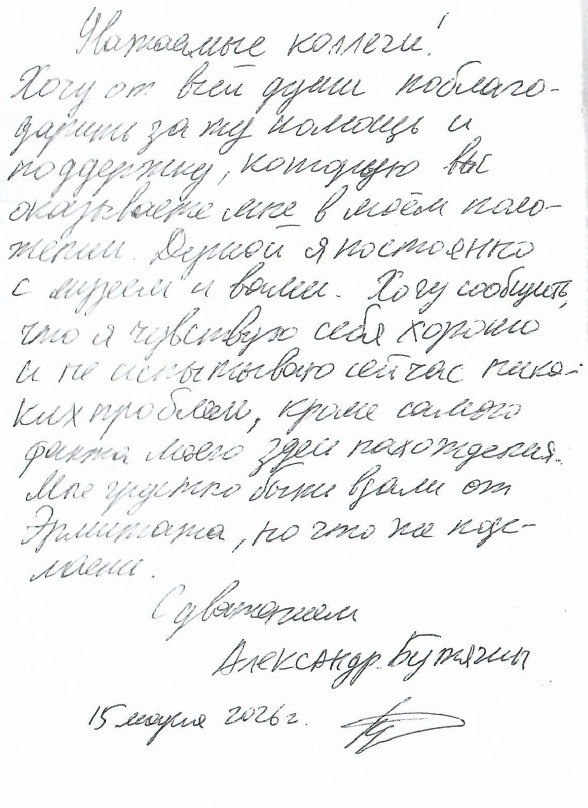 Уважаемые коллеги!
Хочу от всей души поблаго-
дарить за ту помощь и
поддержку, которую вы
оказываете мне в моём поло-
жении. Душой я постоянно
с музеем и вами. Хочу сообщить,
что я чувствую себя хорошо
и не испытываю сейчас ника-
ких проблем, кроме самого
факта моего здесь нахождения.
Мне грустно быть вдали от
Эрмитажа, но что же поде-
лаешь.
С уважением
Александр Бутягин
15 марта 2026 г.